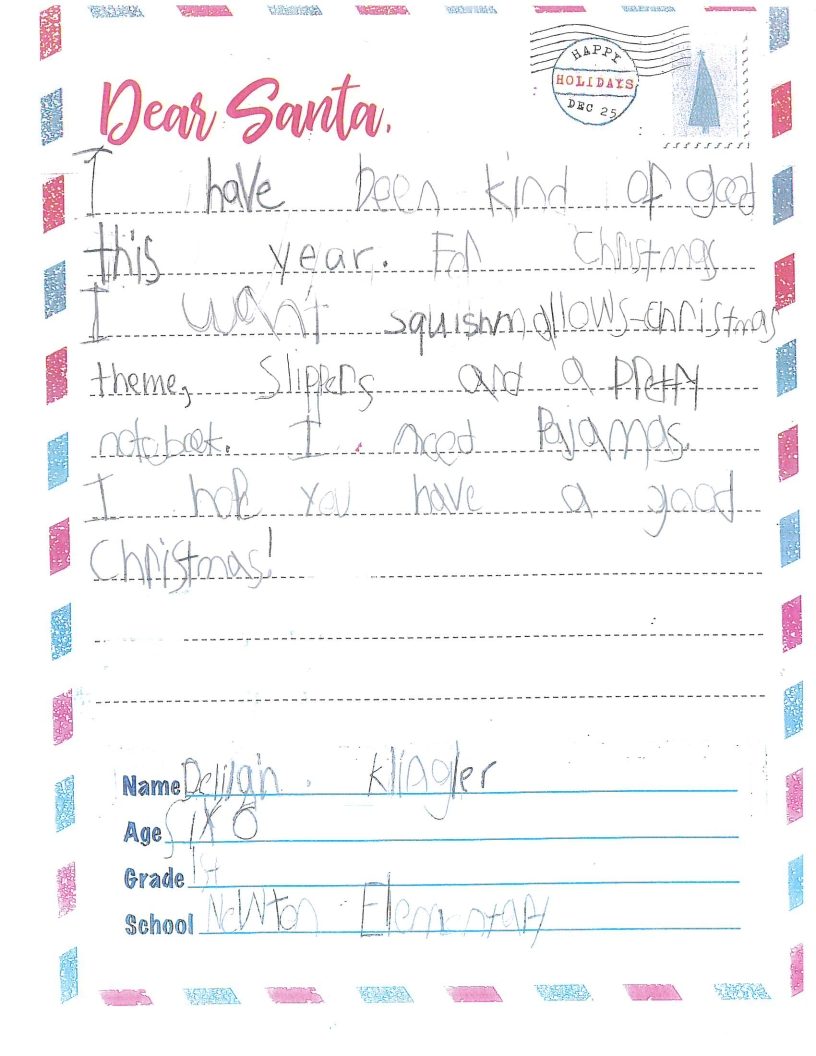 HAPPY
HOLIDAYS
DEC 25
Dear Santa,
I have been kind of good
this year. For Christmas
I want squishmallows-christmas
theme, Slippers and a pretty
notebook. I need Pajamas.
I hope you have a good
Christmas!
Name Delilah Klingler
Age Six 6
Grade 1st
School Newton Elementary